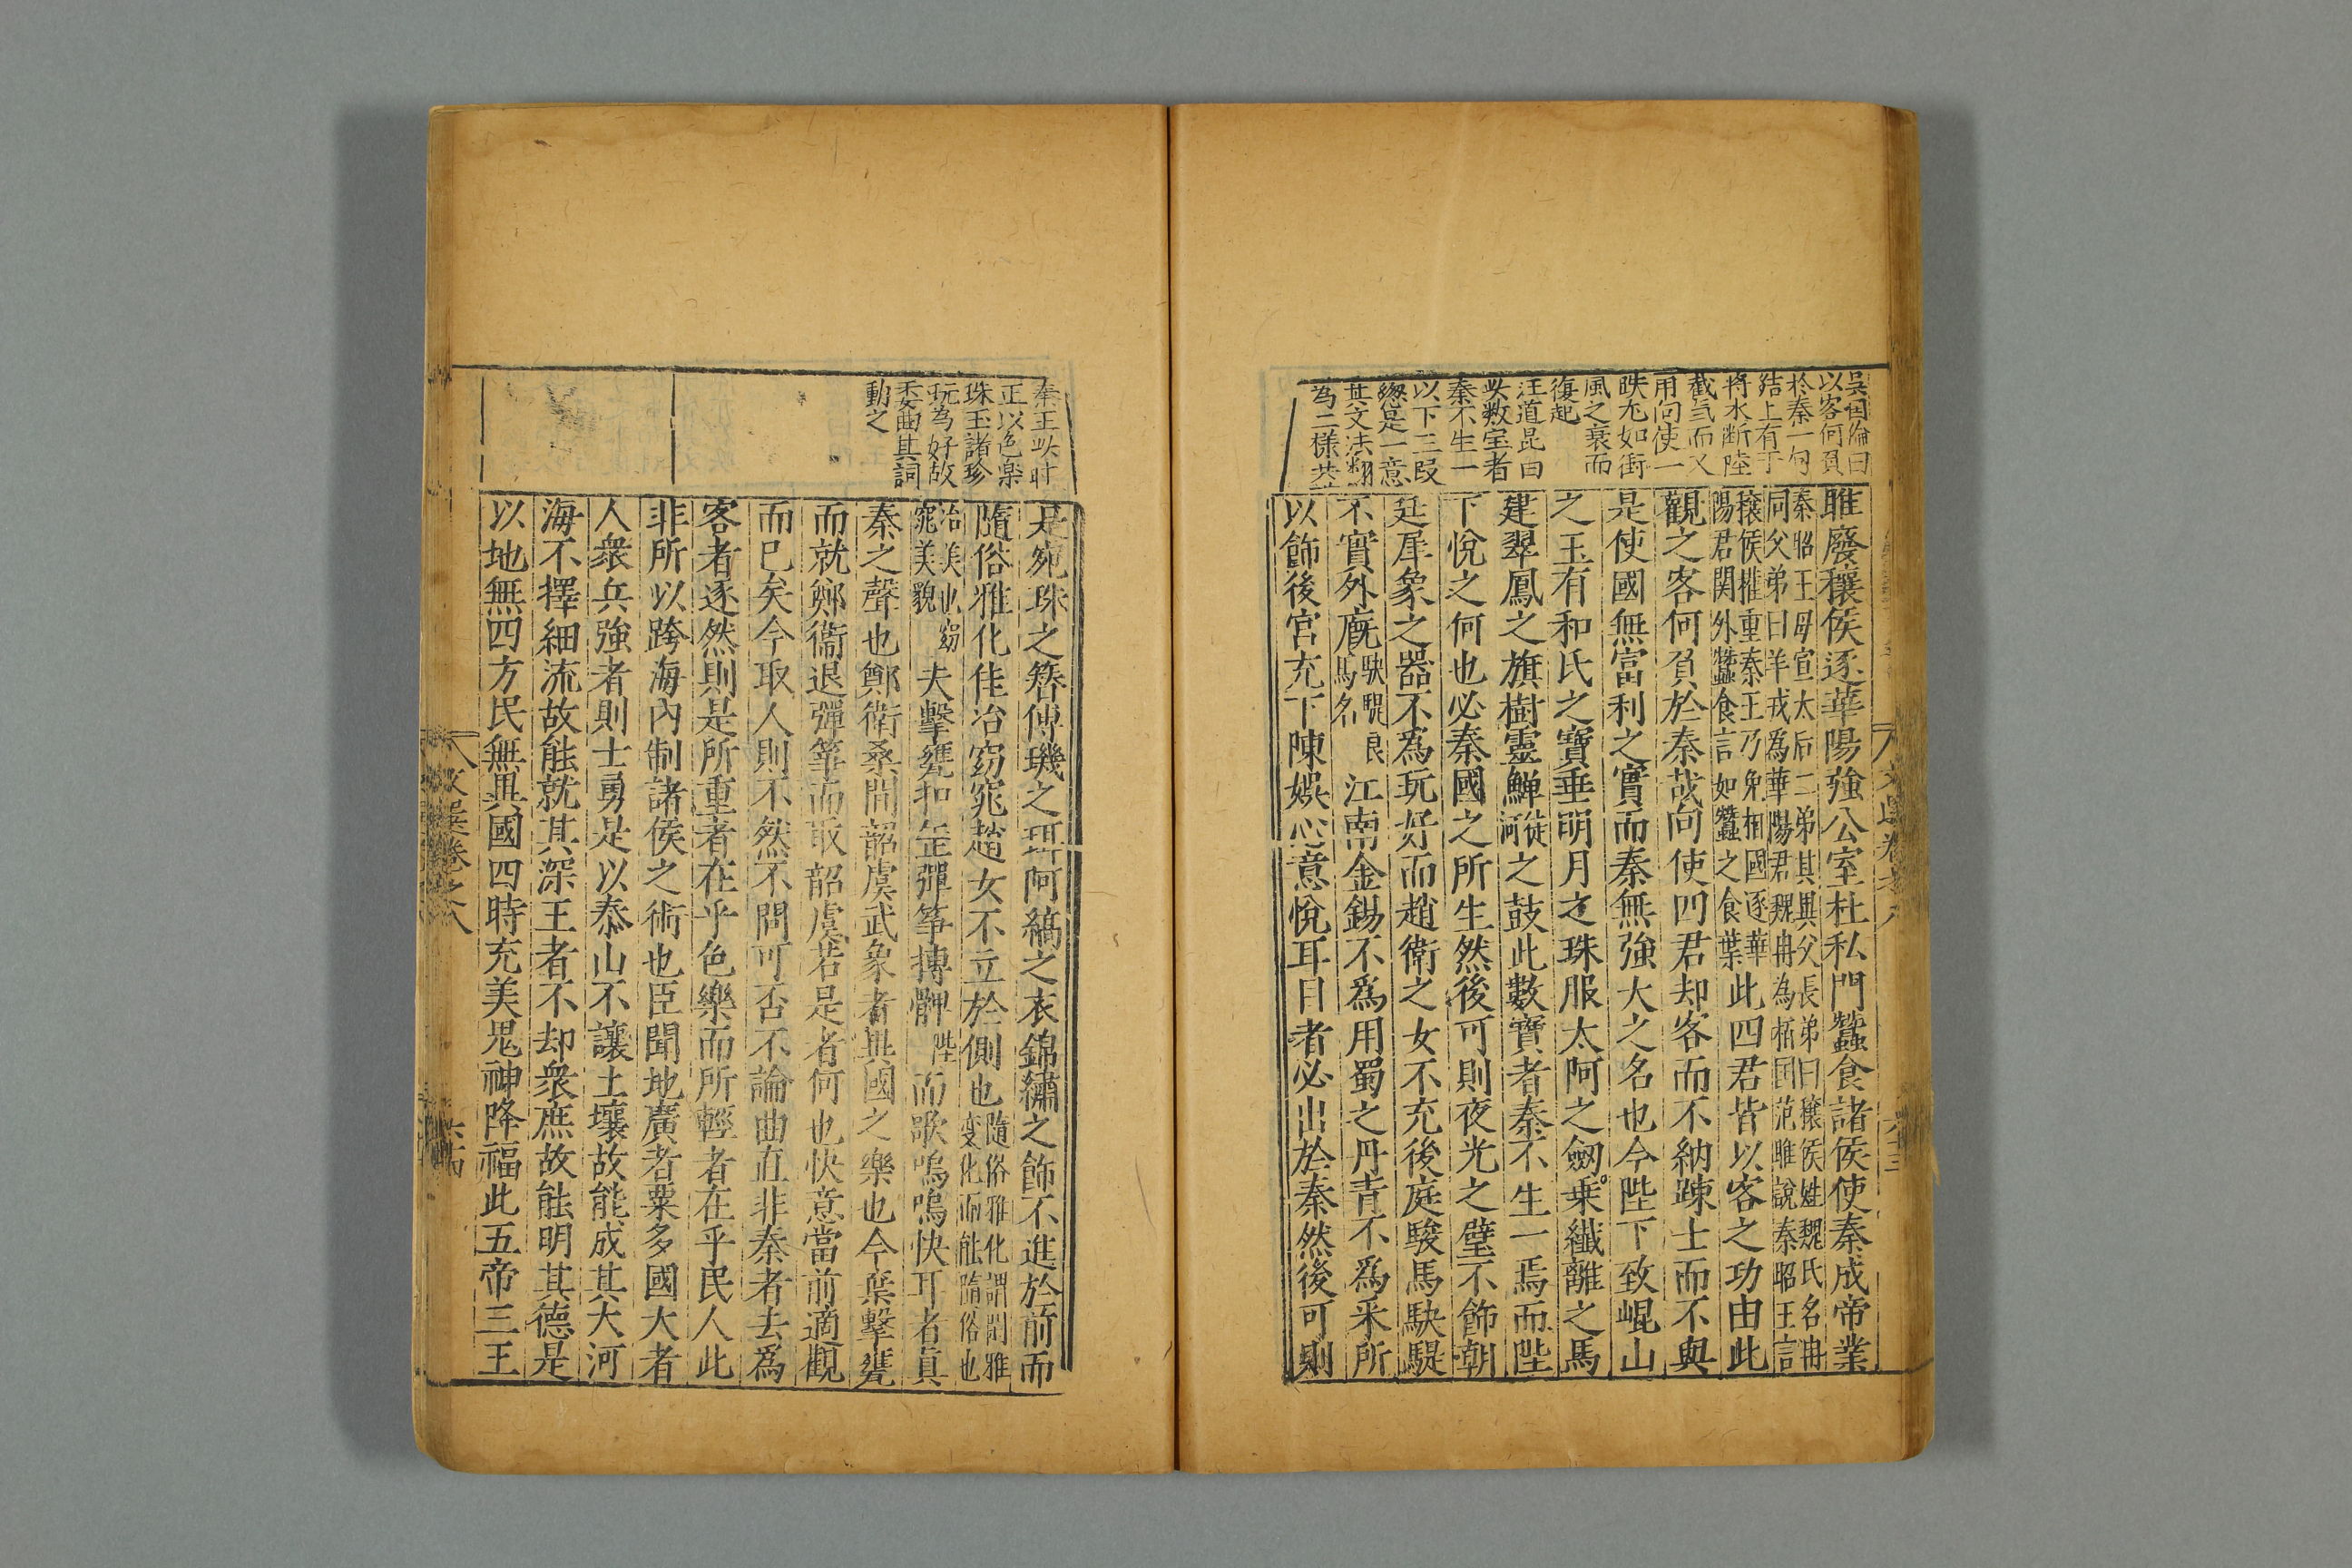 吳国倫曰
以客何負
於秦一句
結上有千
將水断陸
截気而又
用向使一
昳尤如街
風之衰而
復起
汪道昆曰
此数宝者
秦不生一
以下三段
緫是一意
其文法翻
為二樣
雎廢穰侯逐華陽強公室杜私門蠶食諸侯使秦成帝業
秦昭王母宣太后二弟其異父長弟曰穰侯姓魏氏名冉
同父弟曰羊戎為華陽君魏冉為相国范雎說秦昭王言
穰侯權重秦王乃免相國逐華
陽君関外蠶食言如蠶之食葉
此四君皆以客之功由此
觀之客何負於秦哉向使四君却客而不納踈士而不與
是使國無富利之實而秦無強大之名也今陛下致崐山
之玉有和氏之寶垂明月之珠服太阿之劔乗纖離之馬
建翠鳳之旗樹靈鱓徒河之鼓此數寶者秦不生一焉而陛
下悅之何也必秦國之所生然後可則夜光之璧不飾朝
廷犀象之器不為玩好而趙衛之女不充後庭駿馬駃騠
不實外廐駃騠良馬名江南金錫不為用蜀之丹青不為采所
以飾後宮充下陳娛心意悅耳目者必出於秦然後可則
秦王此时
正以色楽
珠玉諸珍
玩為好故
委曲其詞
動之
是宛珠之簪傅璣之珥阿縞之衣錦繡之飾不進於前而
隨俗雅化佳冶窈窕趙女不立於側也隨俗雅化謂閑雅变化而能隨俗也
冶美也窈窕美貌夫擊甕扣缶彈筝搏髀陛而歌嗚嗚快耳者眞
秦之聲也鄭衛桑間韶虞武象者異國之樂也今棄擊甕
而就鄭衞退彈筝而取韶虞若是者何也快意當前適觀
而巳矣今取人則不然不問可否不論曲直非秦者去為
客者逐然則是所重者在乎色樂而所輕者在乎民人此
非所以跨海內制諸侯之術也臣聞地廣者粟多國大者
人衆兵強者則士勇是以泰山不讓土壤故能成其大河
海不擇細流故能就其深王者不却衆庶故能明其德是
以地無四方民無異國四時充美鬼神降福此五帝三王